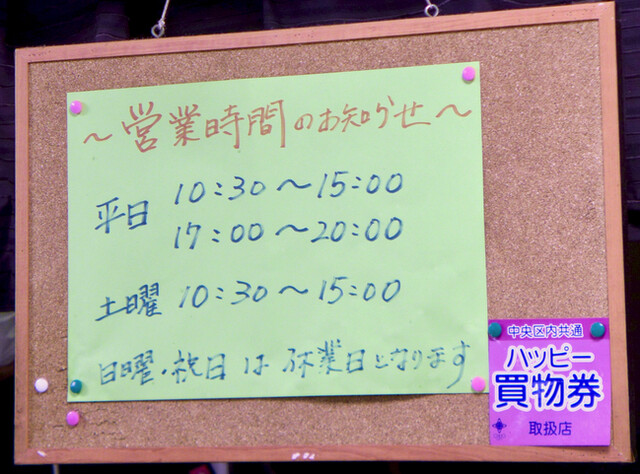 ～営業時間のお知らせ～
平日 10:30～15:00
17:00～20:00
土曜 10:30～15:00
日曜・祝日は休業日となります
中央区内共通
ハッピー
買物券
取扱店